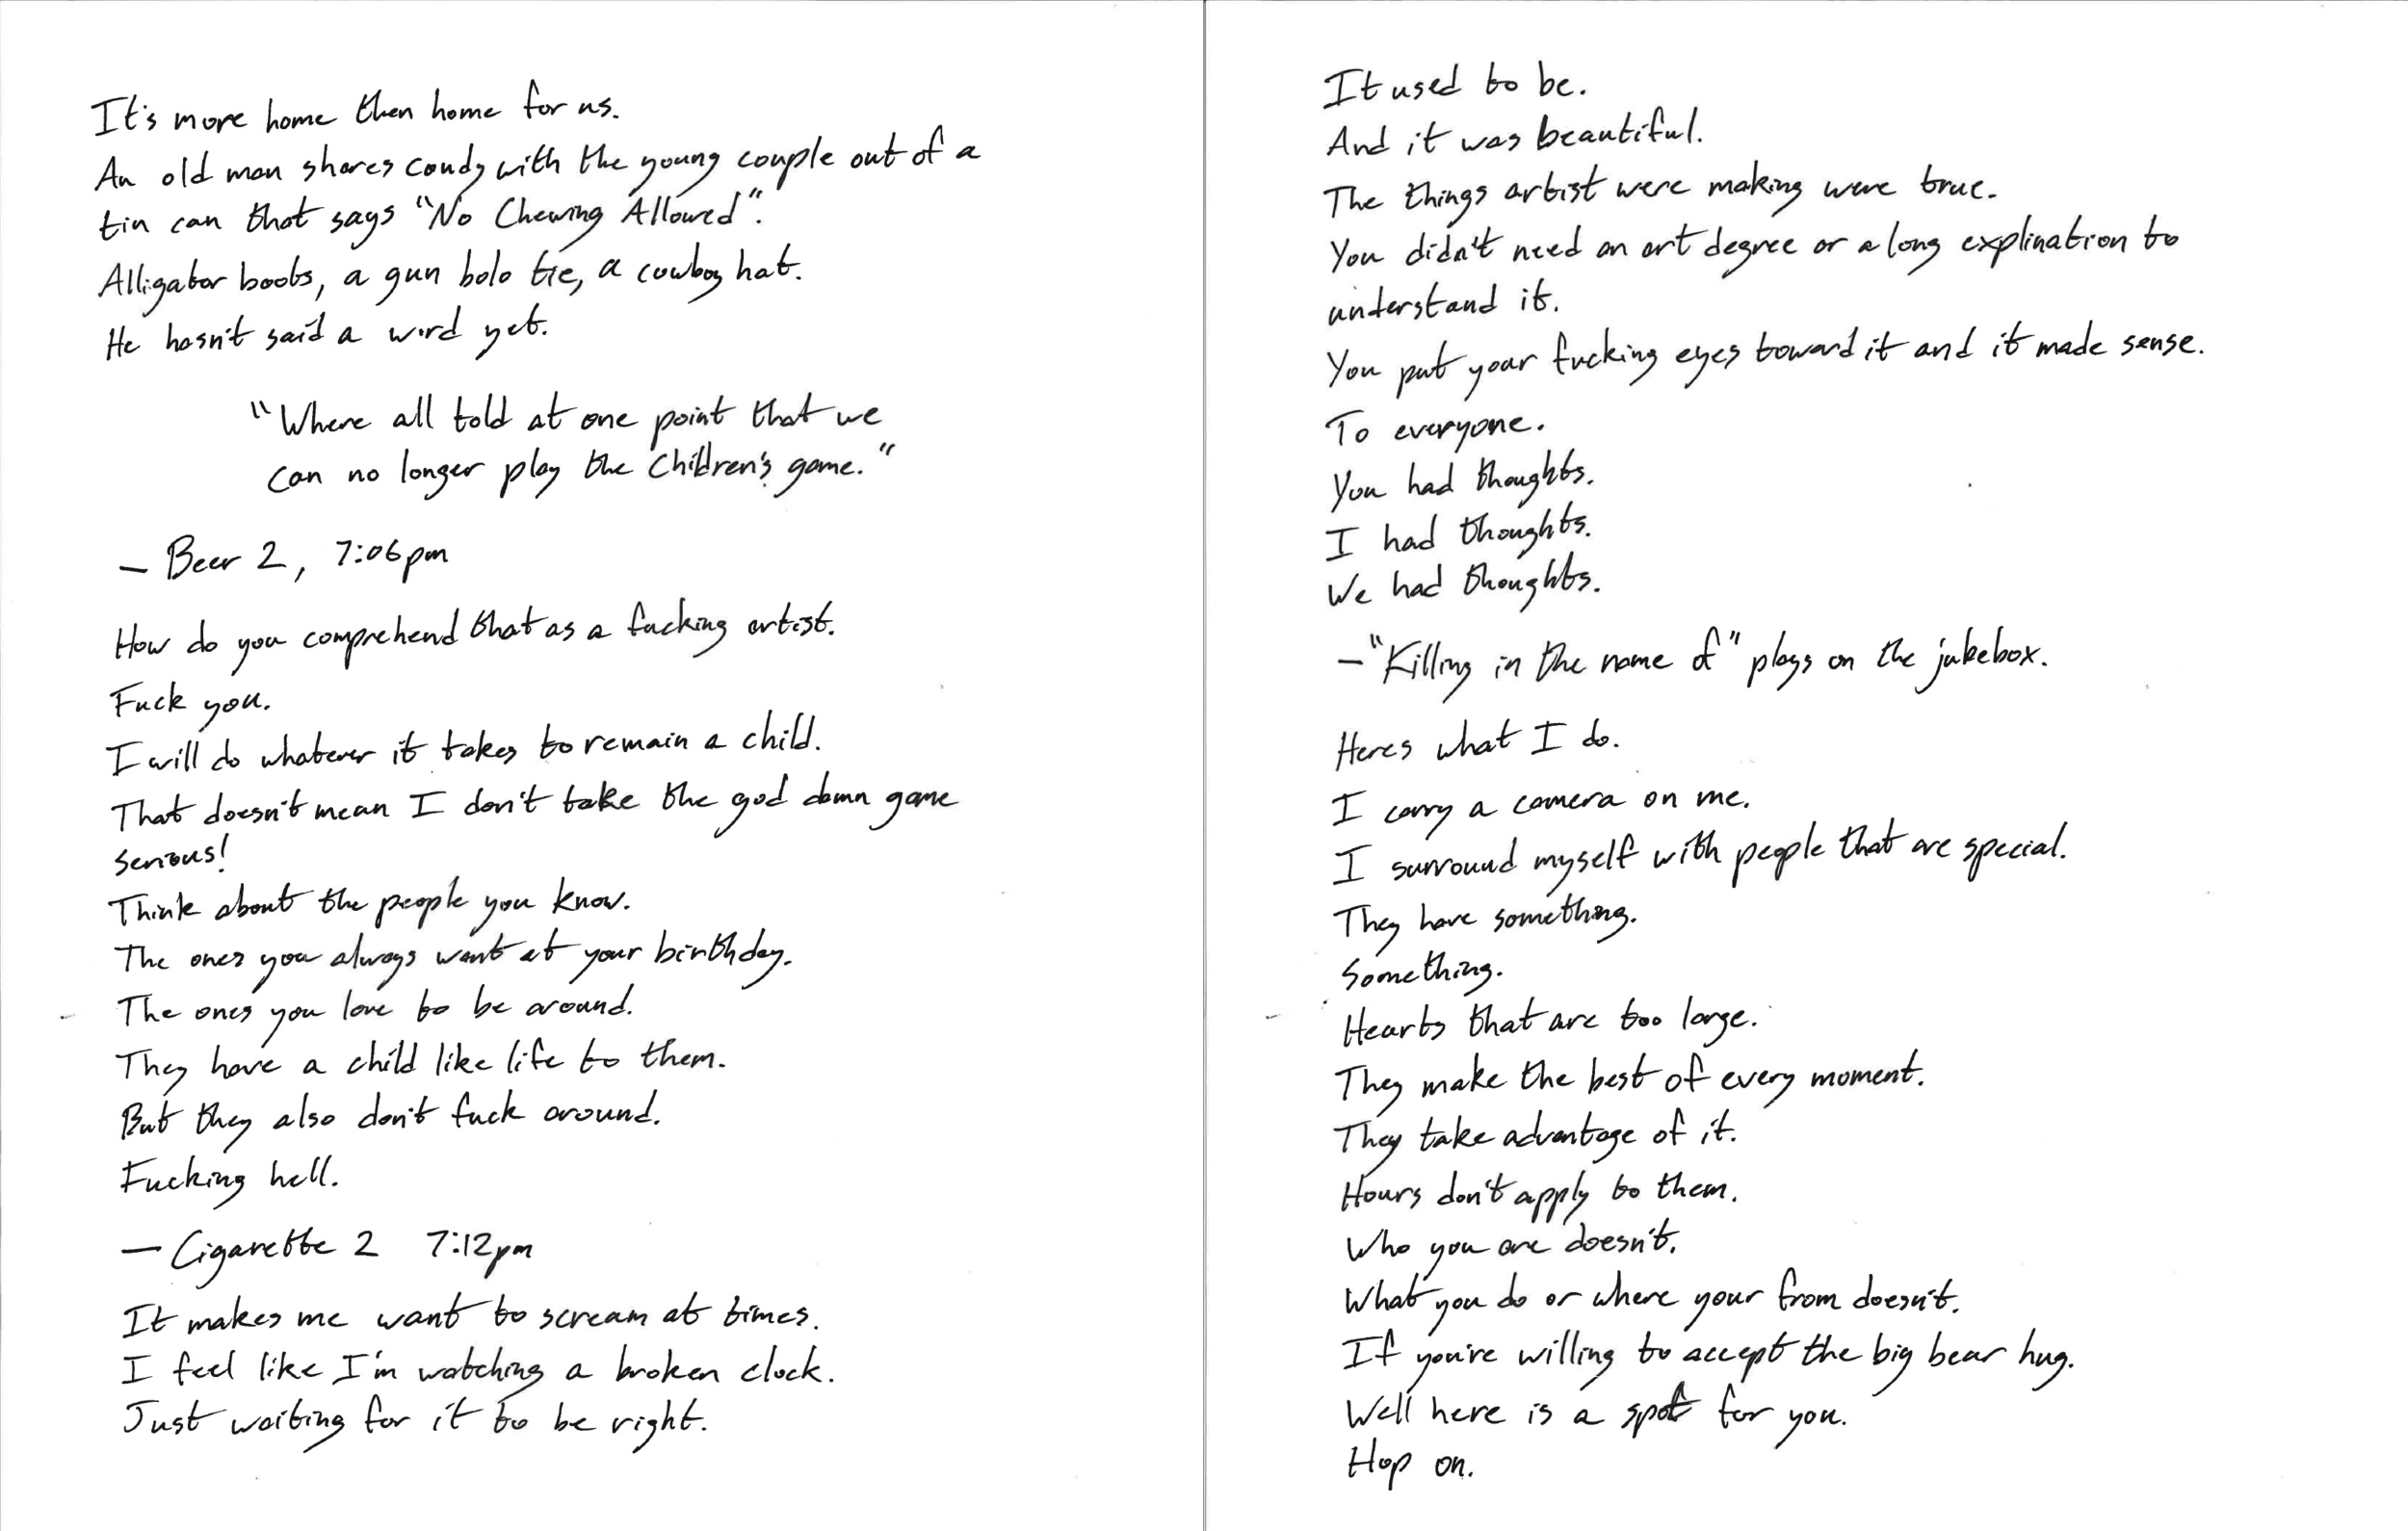 It's more home then home for us.
An old man shares candy with the young couple out of a
tin can that says "No Chewing Allowed".
Alligator boots, a gun bolo tie, a cowboy hat.
He hasn't said a word yet.
"Where all told at one point that we
can no longer play the Children's game."
— Beer 2, 7:06pm
How do you comprehend that as a fucking artist.
Fuck you.
I will do whatever it takes to remain a child.
That doesn't mean I don't take the god damn game
serious!
Think about the people you know.
The ones you always want at your birthday.
The ones you love to be around.
They have a child like life to them.
But they also don't fuck around.
Fucking hell.
— Cigarette 2 7:12pm
It makes me want to scream at times.
I feel like I'm watching a broken clock.
Just waiting for it to be right.
It used to be.
And it was beautiful.
The things artist were making were true.
You didn't need an art degree or a long explination to
understand it.
You put your fucking eyes toward it and it made sense.
To everyone.
You had thoughts.
I had thoughts.
We had thoughts.
— "Killing in the name of" plays on the jukebox.
Heres what I do.
I carry a camera on me.
I surround myself with people that are special.
They have something.
Something.
Hearts that are too large.
They make the best of every moment.
They take advantage of it.
Hours don't apply to them.
Who you are doesn't.
What you do or where your from doesn't.
If you're willing to accept the big bear hug.
Well here is a spot for you.
Hop on.